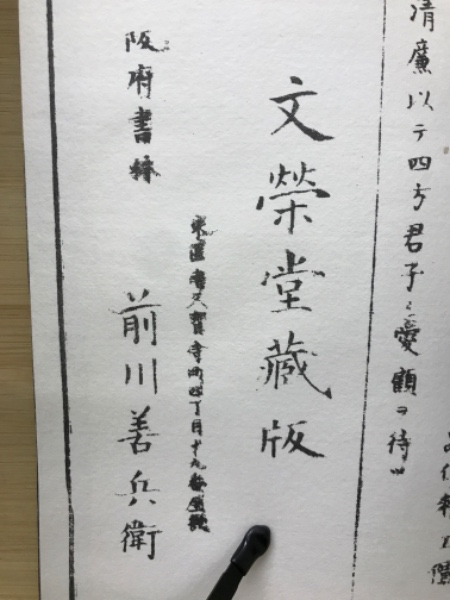 清廉以テ四方君子ノ愛顧ヲ待ツ
文榮堂藏版
東區南久寳寺町四丁目十九番屋敷
阪府書林
前川善兵衛